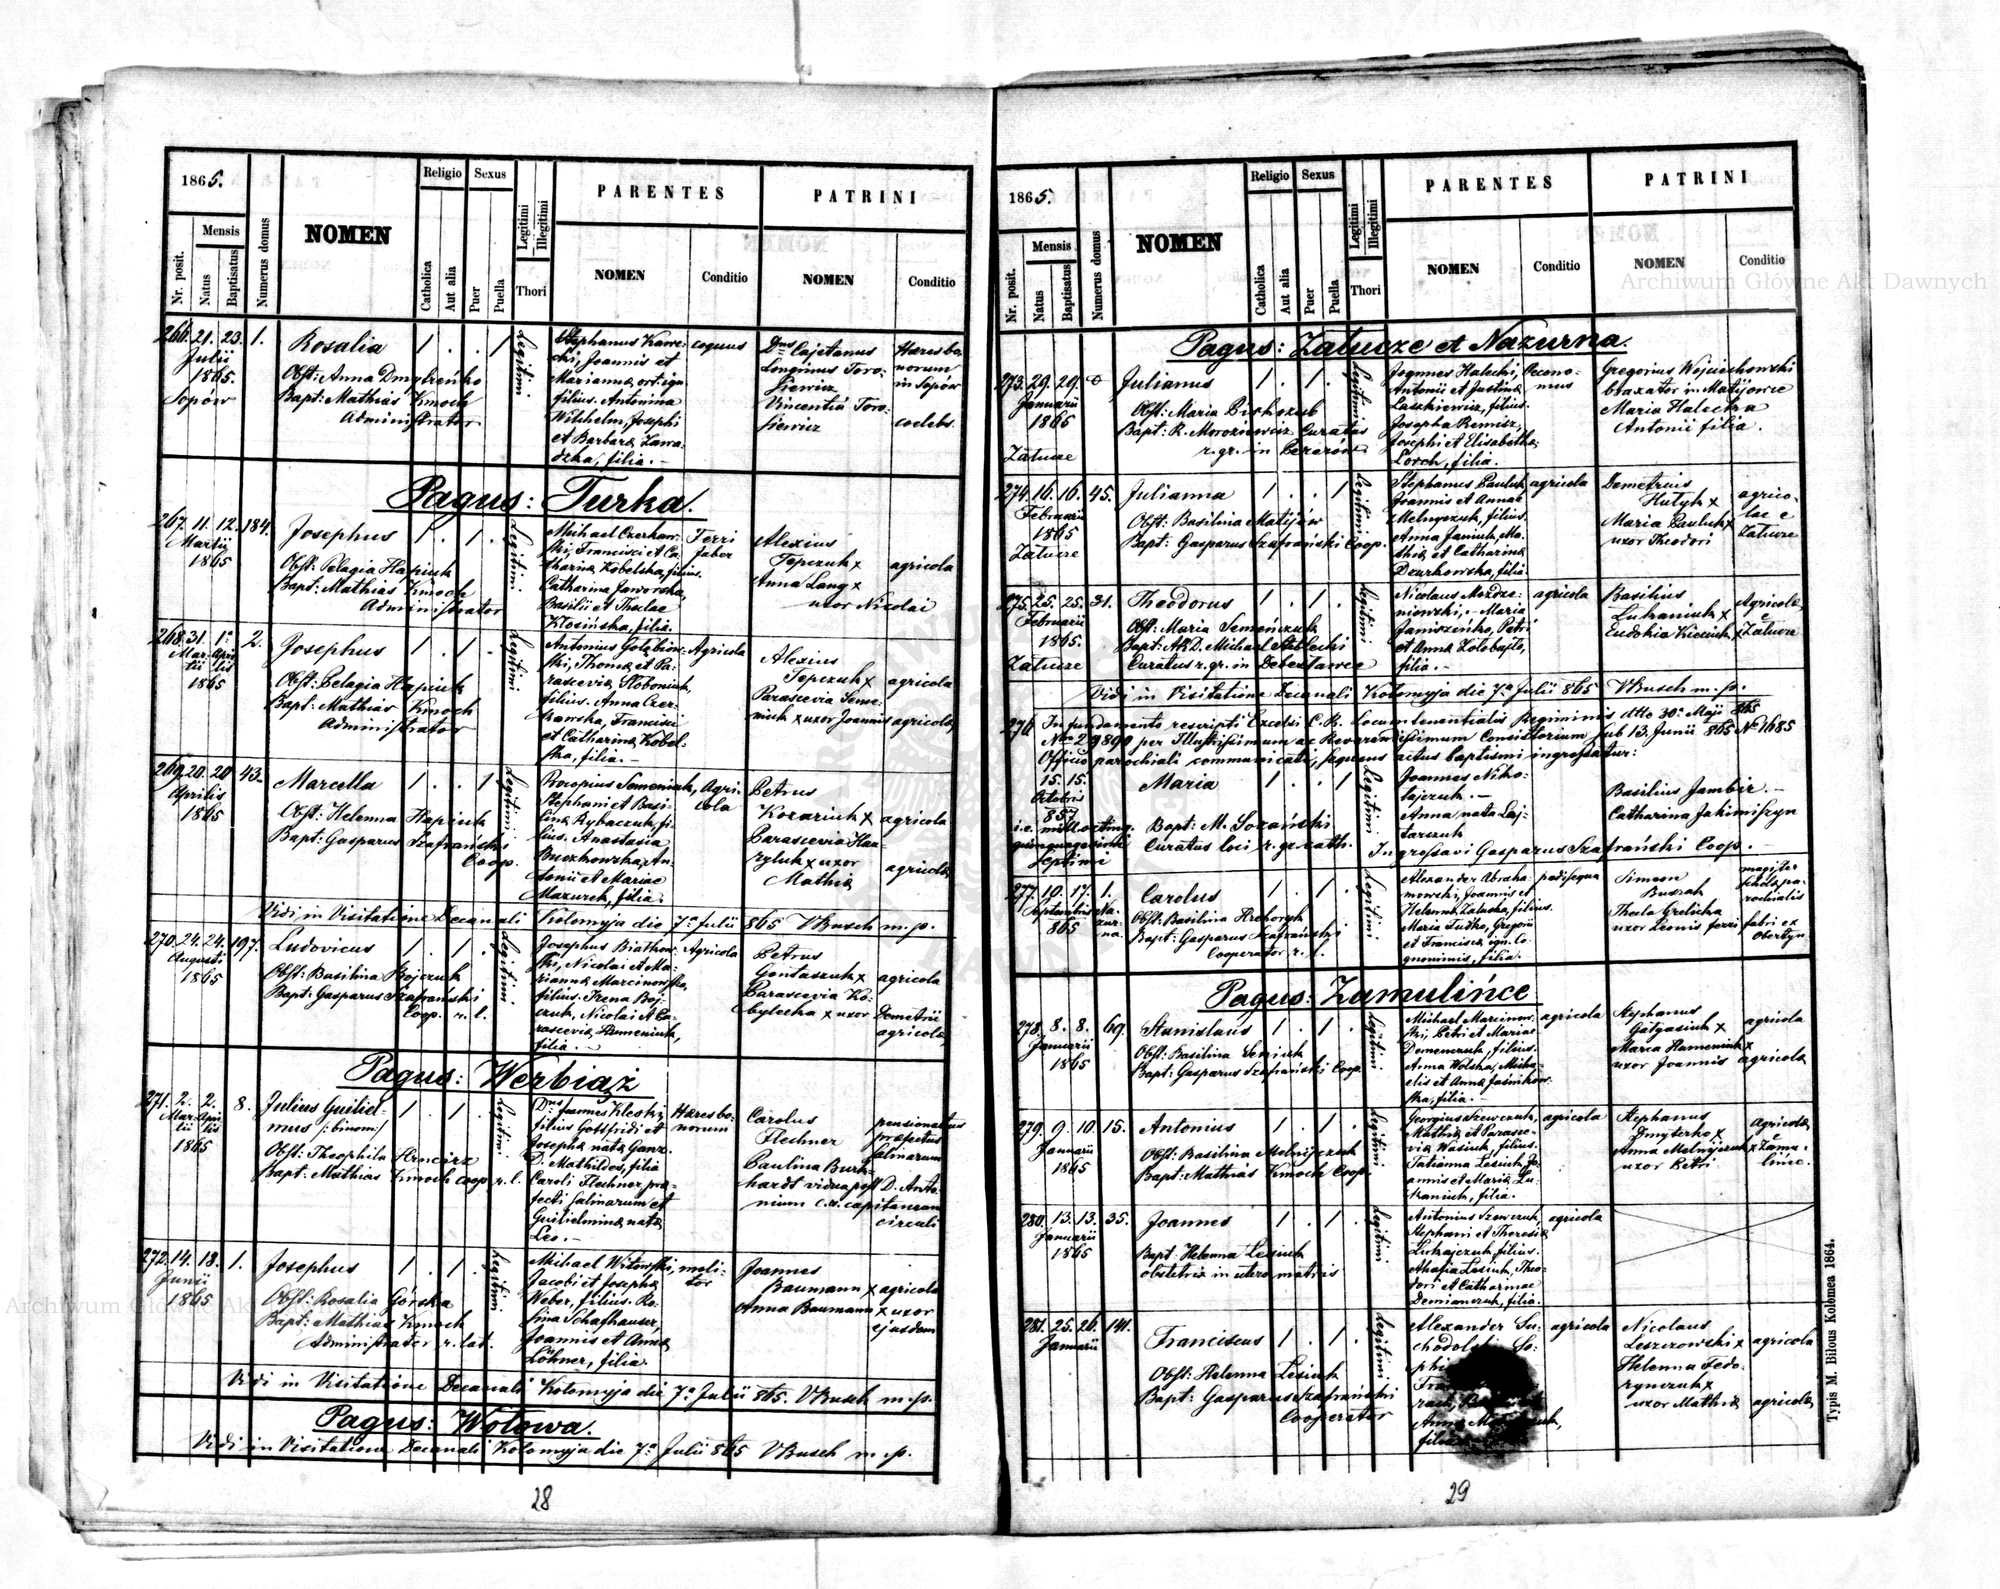 1865.
Nr. posit.
Mensis
Natus
Baptisatus
Numerus domus
NOMEN
Religio
Catholica
Aut alia
Sexus
Puer
Puella
Legitimi
Illegitimi
Thori
PARENTES
NOMEN
Conditio
PATRINI
NOMEN
Conditio
266. 21. 23. 1.
Julii
1865.
Sopów
Rosalia
Obst: Anna Dmytreńko
Bapt: Mathias Kmoch
Administrator
1 . . 1
Legitimi
Stephanus Kawec-
ki, Joannis et
Marianna ort. ign.
filius. Antonina
Wilhelm, Josephi
et Barbara Zawa-
dzka, filia. -
coquus
Dnus Cajetanus
Longinus Toro-
siewicz
Vincentia Toro-
siewicz
Haeres bo-
norum
in Sopów
coelebs.
Pagus: Turka.
267. 11. 12. 184.
Martii
1865
Josephus
Obst: Pelagia Hapiuk
Bapt: Mathias Kmoch
Administrator
1 . 1 .
Legitimi
Michael Czerkaw-
ski, Francisci et Ca-
tharina Kobelska, filius.
Catharina Jaworska,
Basilii et Theclae
Kłosińska, filia.
Ferri
faber
Alexius
Tepczuk x
Anna Lang x
uxor Nicolai
agricola
268. 31. 1a 2.
Mar- Apri-
tii lis
1865
Josephus
Obst: Pelagia Hapiuk
Bapt: Mathias Kmoch
Administrator
1 . 1 .
Legitimi
Antonius Gołębiow-
ski, Thoma et Pa-
rascevia Słoboniuk,
filius. Anna Czer-
kawska, Francisci
et Catharina Kobel-
ska, filia. -
Agricola
Alexius
Tepczuk x
Parascevia Seme-
niuk x uxor Joannis
agricola
agricola
269. 20. 20 43.
Aprilis
1865
Marcella
Obst: Helenna Hapiuk
Bapt: Gasparus Szafrański
Coop.
1 . . 1
Legitimi
Procopius Semeniuk,
Stephani et Basi-
lina Rybaczuk, fi-
lius. Anastasia
Buczkowska, An-
tonii et Mariae
Mazurek, filia.
Agri-
cola
Petrus
Kozariuk x
Parascevia Hau-
ryluk x uxor
Mathia
agricola
agricola
Vidi in Visitatione Decanali Kolomyja die 7a Julii 865 VBusch m.p.
270. 24. 24. 197.
Augusti
1865
Ludovicus
Obst: Basilina Bojczuk
Bapt: Gasparus Szafrański
Coop. r. l.
1 . 1 .
Legitimi
Josephus Białkow-
ski, Nicolai et Ma-
rianna Marcinowska,
filius. Irena Boj-
czuk, Nicolai et Pa-
rascevia Humeniuk,
filia. -
Agricola
Petrus
Gontaszuk x
Parascevia Ko-
bylecka x uxor
agricola
Demetrii
agricola
Pagus: Werbiąż
271. 2. 2. 8.
Mar- Apri-
tii lis
1865
Julius Guiliel-
mus /: binom:/
Obst: Theophila Hencarz
Bapt: Mathias Kmoch coop. r. l.
1 . 1 .
Legitimi
Dnus Joannes Kleski,
filius Gottfridi et
Josepha nata Ganz.
D. Mathildes, filia
Caroli Flechner pra-
fecti salinarum et
Guilielmina nata
Leo. -
Haeres bo-
norum
Carolus
Flechner
Paulina Burk-
hardt vidua post D. Anto-
nium c.r. capitaneum
circuli
pensionatus
praefectus
salinarum
272. 14. 18. 1.
Junii
1865
Josephus
Obst: Rosalia Górska
Bapt: Mathias Kmoch
Administrator r. lat.
1 . 1 .
Legitimi
Michael Witowski,
Jacobi et Josepha
Weber, filius. Ro-
sina Schafhauser,
Joannis et Anna
Löhner, filia.
moli-
tor
Joannes
Baumann x
Anna Baumann x uxor
ejusdem
agricola
Vidi in Visitatione Decanali Kolomyja die 7a Julii 865. VBusch m.p.
Pagus: Wołowa.
Vidi in Visitatione Decanali Kolomyja die 7a Julii 865 VBusch m.p.
28
1865.
Nr. posit.
Mensis
Natus
Baptisatus
Numerus domus
NOMEN
Religio
Catholica
Aut alia
Sexus
Puer
Puella
Legitimi
Illegitimi
Thori
PARENTES
NOMEN
Conditio
PATRINI
NOMEN
Conditio
Pagus: Załucze et Nazurna.
273. 29. 29. 0
Januarii
1865
Załucze
Julianus
Obst: Maria Pirhozub
Bapt: R. Moroziewicz Curatus
r. gr. in Czeremów
1 . 1 .
Legitimi
Joannes Halecki,
Antonii et Justina
Laszkiewicz, filius.
Josepha Remisz,
Josephi et Elisabetha
Lorch, filia.
Oecono-
mus
Gregorius Wojciechowski
taxator in Matijowce
Maria Halecka
Antonii filia.
274. 16. 16. 45.
Februarii
1865
Załucze
Julianna
Obst: Basilina Matijów
Bapt: Gasparus Szafrański Coop.
1 . . 1
Legitimi
Stephanus Pauluk
Joannis et Annae
Melnyczuk, filius.
Anna Janiuk, Ma-
thia et Catharina
Dzurkowska, filia.
agricola
Demetrius
Hutyk x
Maria Pauluk x
uxor Theodori
agrico-
lae e
Załucze
275. 25. 25. 31.
Februarii
1865.
Załucze
Theodorus
Obst: Maria Semończuk
Bapt: A.R.D. Michael Steblecki
Curatus r. gr. in Debesławce
1 . 1 .
Legitimi
Nicolaus Mozdze-
niowski, - Maria
Janiszeńko, Petri
et Anna Zołobajło,
filia. -
agricola
Basilius
Lukaniuk x
Eudokia Kiciuk x
Agricola
Załucze
Vidi in Visitatione Decanali Kolomyja die 7a Julii 865 VBusch m.p.
276. In fundamento rescripti Excelsi C.R. Locumtenentialis Regiminis ddto 30a Maji 865
Nro 29890 per Illustrissimum ac Reverendissimum Consistorium sub 13. Junii 865 No 1685
Officio parochiali communicati, sequens actus baptismi ingrossatur:
15. 15.
Octobris
857
i.e. mill. octing.
quinquagesimi
septimi
Maria
Bapt: M. Sozański
Curatus loci r. gr. cath.
1 . . 1
Legitimi
Joannes Niko-
łajczuk. -
Anna nata Laj-
tarczuk
Basilius Jambir. -
Catharina Jakimiszyn
Ingressavi Gasparus Szafrański Coop. -
277. 10. 17. 1.
Septembris Na-
865 zur-
na.
Carolus
Obst: Basilina Hrehoryk
Bapt: Gasparus Szafrański
Cooperator r. l.
1 . 1 .
Legitimi
Alexander Abraha-
mowski, Joannis et
Helenna Załuska, filius.
Maria Ludko, Gregorii
et Francisca, ign. co-
gnominis, filia.
pedissequa
Simeon
Buzak
Thecla Grelicka
uxor Leonis ferri
magister
schola pa-
rochialis
fabri ex
Obertyn
Pagus: Zamulińce
278. 8. 8. 69.
Januarii
1865
Stanislaus
Obst: Basilina Seniuk
Bapt: Gasparus Szafrański Coop.
1 . 1 .
Legitimi
Michael Marcinow-
ski, Petri et Mariae
Demenczuk, filius.
Anna Wolska, Micha-
elis et Anna Jasinkow-
ska, filia. -
agricola
Stephanus
Gałgasiuk x
Maria Humeniuk x
uxor Joannis
agricola
agricola
279. 9. 10. 15.
Januarii
1865
Antonius
Obst: Basilina Melnijczuk
Bapt: Mathias Kmoch Coop.
1 . 1 .
Legitimi
Georgius Szewczuk,
Mathia et Parasce-
via Wasiuk, filius.
Tatianna Lesiuk, Jo-
annis et Maria Lu-
kaniuk, filia.
agricola
Stephanus
Dmyterko x
Anna Melnijczuk x
uxor Petri
Agricola
e
Zamu-
lince.
280. 13. 13. 35.
Januarii
1865
Joannes
Bapt: Helenna Lesiuk
obstetrix in utero matris
1 . 1 .
Legitimi
Antonius Szewczuk,
Stephani et Theresia
Lukajczuk filius.
Ahafia Lesiuk, Theo-
dori et Catharinae
Demianczuk, filia.
agricola
281. 25. 26. 141.
Januarii
Franciscus
Obst: Helenna Lesiuk
Bapt: Gasparus Szafrański
Cooperator
1 . 1 .
Legitimi
Alexander Su-
chodolski
Anna
filia
agricola
Nicolaus
Leszczowski x
Helenna Fedo-
rynczuk x
uxor Mathia
agricola
agricola
29
Typis M. Bilous Kolomea 1864.
Archiwum Główne Akt Dawnych
Archiwum Główne Akt Dawnych